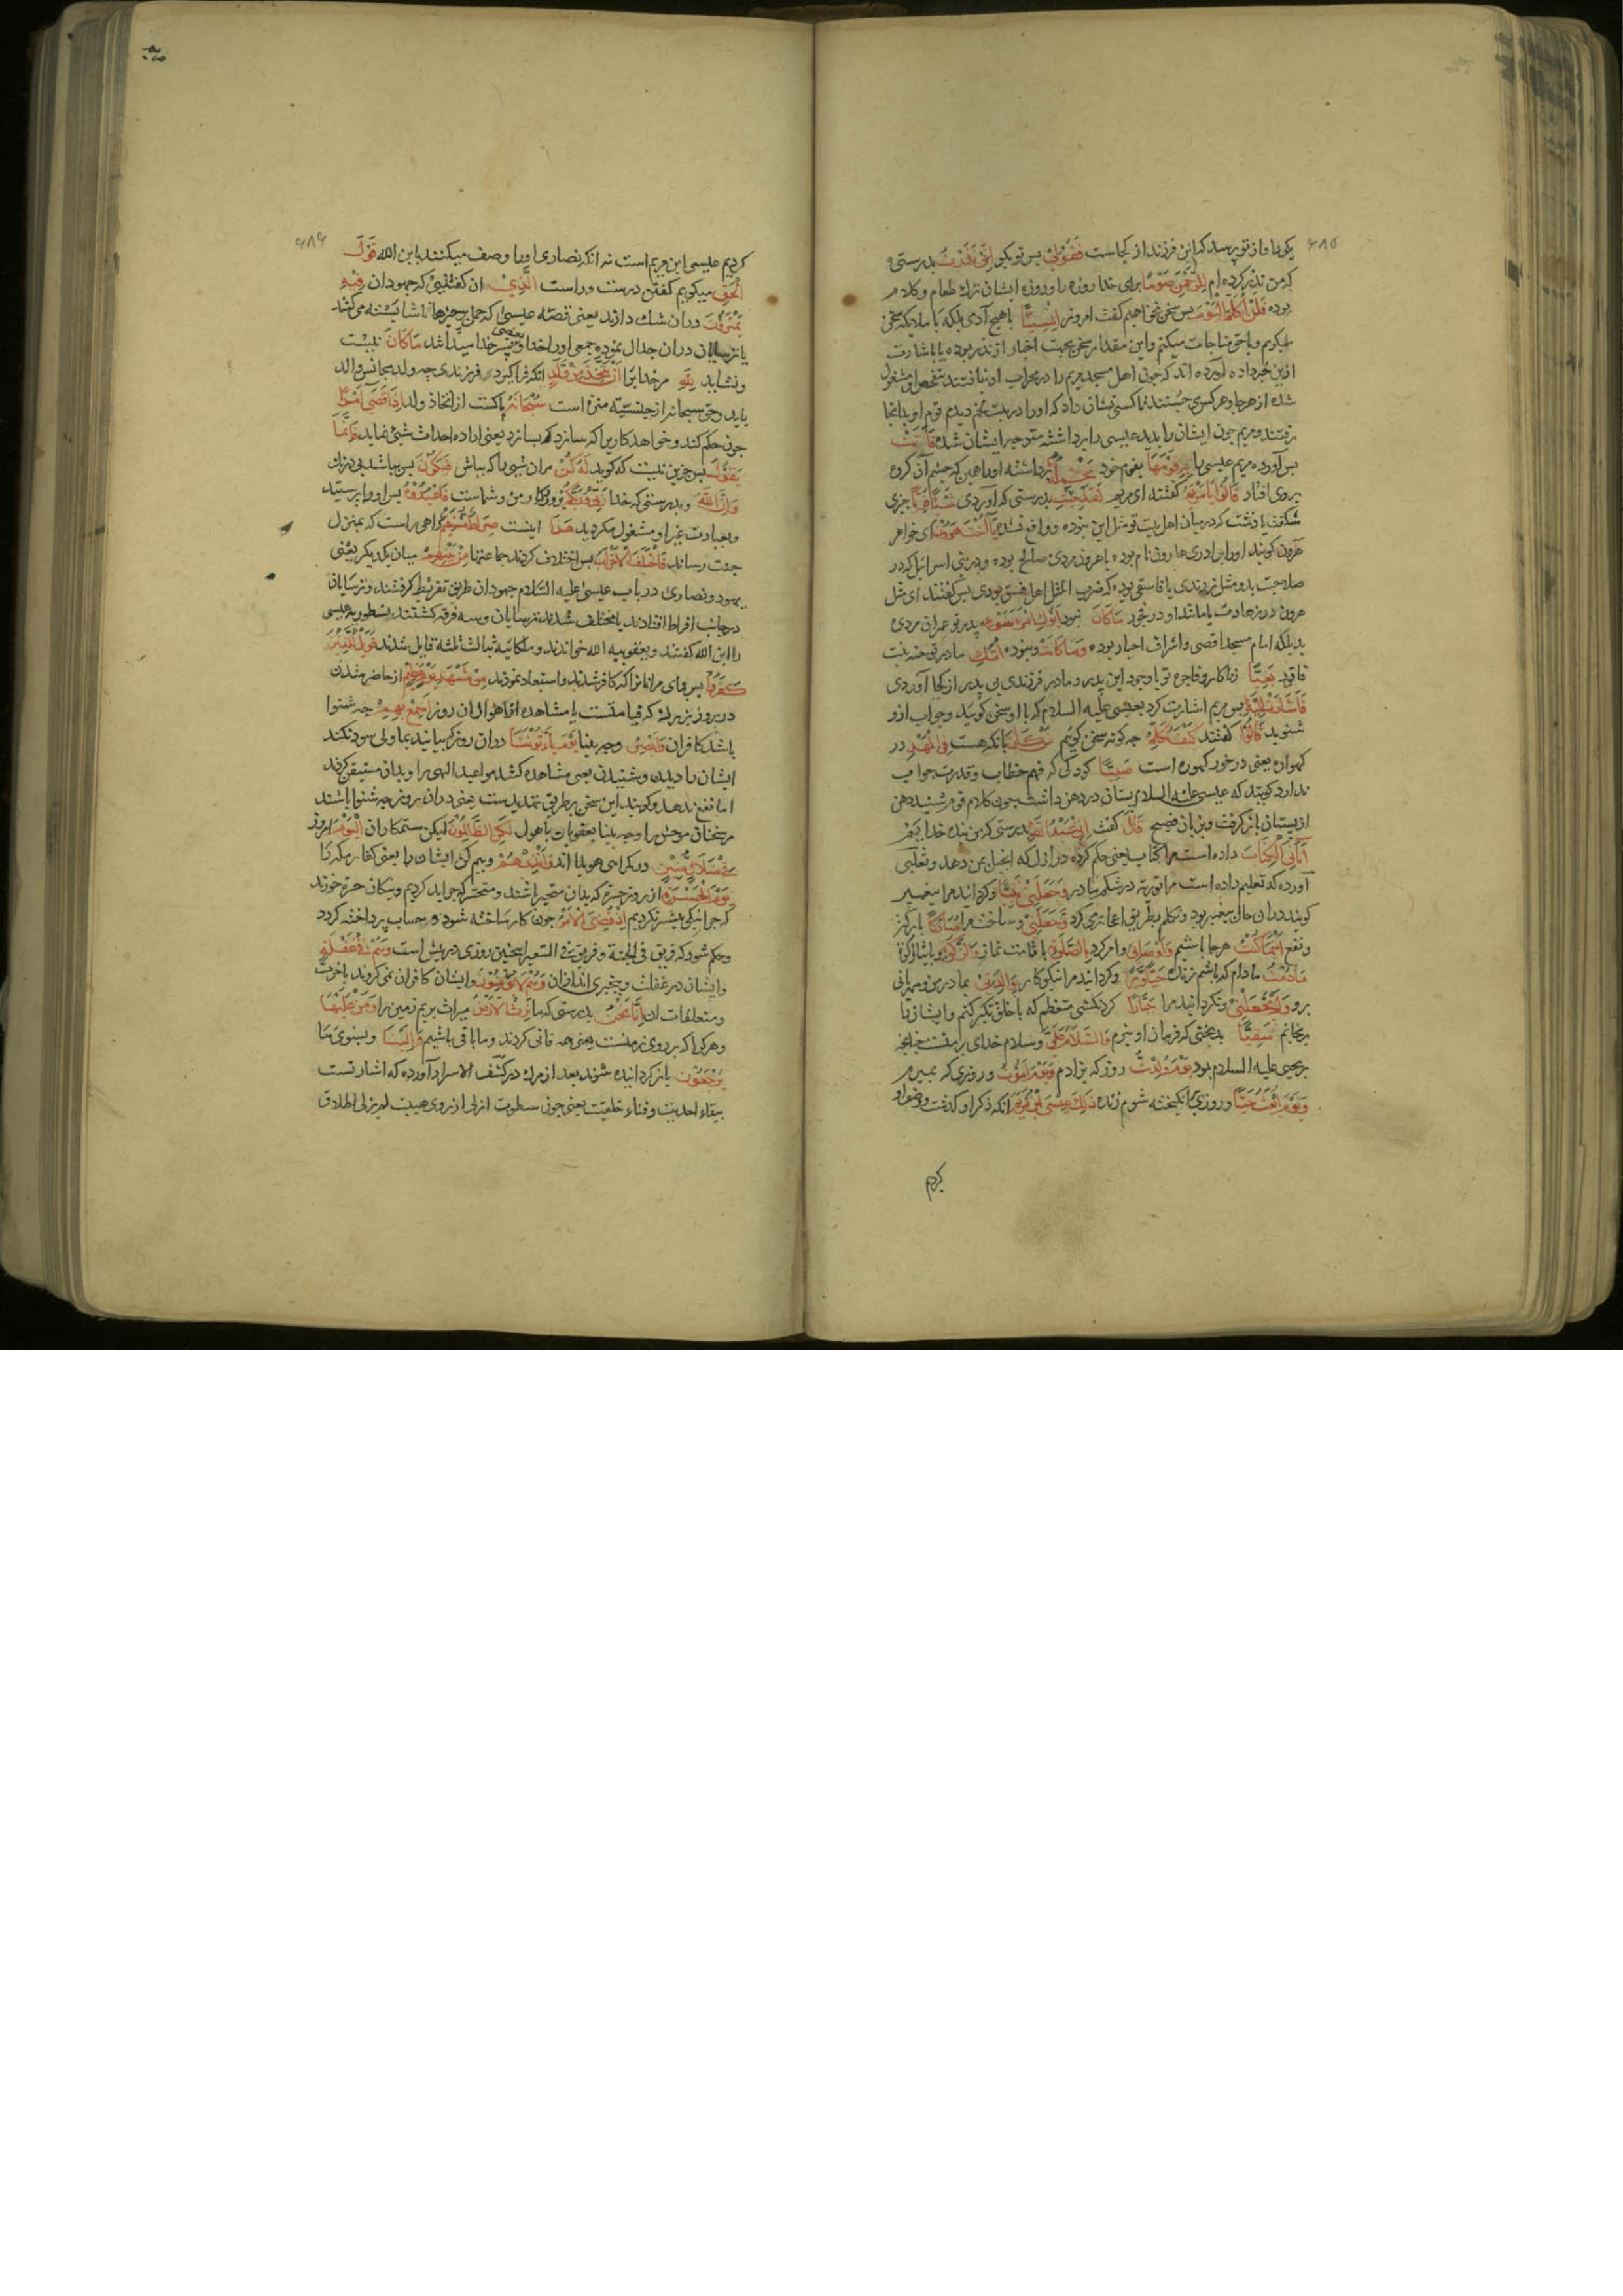 ۶۸۵
یکی را و از تو پرسد که این فرزند از کجاست فَقُولِي پس تو بگو اِنِّي نَذَرْتُ بدرستی
که من نذر کرده ام لِلرَّحْمٰنِ صَوْمًا برای خدا روزه را و روزه ایشان ترک طعام و کلام
بوده فَلَنْ اُكَلِّمَ الْيَوْمَ پس سخن نخواهم گفت امروز اِنْسِيًّا با هیچ آدمی بلکه با ملائکه سخن
میکویم و با حق مناجات میکنم و این مقدار سخن بجهت اخبار از نذر بوده یا باشارت
ازین خبر داده آورده اند که چون اهل مسجد مریم را در محراب او نیافتند بتفحص او مشغول
شده از هرجا و هرکس می جستند تا کسی نشان داد که او را در بیت لحم دیدم قوم او بدانجا
رفتند و مریم چون ایشان را بدید عیسی را برداشته متوجه ایشان شده فَاَتَتْ
پس آورد مریم عیسی را بِهِ قَوْمَهَا بقوم خود تَحْمِلُهُ برداشته او را همین که چشم آن گروه
بروی افتاد قَالُوا يَا مَرْيَمُ گفتند ای مریم لَقَدْ جِئْتِ بدرستی که آوردی شَيْئًا فَرِيًّا چیزی
شگفت یا زشت که در میان اهل بیت تو مثل این نبوده و واقع نشده يَا اُخْتَ هٰرُونَ ای خواهر
هارون کویند او را برادری هارون نام بوده یا هرون مردی صالح بوده و در بنی اسرائیل که در
صلاحیت بدو مثل زدندی یا فاسقی بوده که ضرب المثل اهل فسق بودی پس گفتند ای مثل
هرون در زهادت یا مانند او در فجور مَا كَانَ نبود اَبُوكِ امْرَاَ سَوْءٍ پدر تو عمران مردی
بد بلکه امام مسجد اقصی و اشراف احبار بوده وَمَا كَانَتْ و نبوده اُمُّكِ مادر تو حنه بنت
فاقود بَغِيًّا زناکار و فاجره تو با وجود این پدر و مادر فرزندی بی پدر از کجا آوردی
فَاَشَارَتْ اِلَيْهِ پس مریم اشارت کرد بعیسی علیه السلام که با او سخن کویید و جواب ازو
شنوید قَالُوا گفتند كَيْفَ نُكَلِّمُ چه گونه سخن کوئیم مَنْ كَانَ با آنکه هست فِي الْمَهْدِ در
کهواره یعنی در خور کهواره است صَبِيًّا کودکی که فهم خطاب و قدرت جواب
ندارد کویند که عیسی علیه السلام پستان در دهن داشت چون کلام قوم شنید دهن
از پستان باز گرفت و بزبان فصیح قَالَ گفت اِنِّي عَبْدُ اللهِ بدرستی که من بنده خدایم
اٰتَانِيَ الْكِتَابَ داده است مرا کتاب یعنی حکم کرده در ازل که انجیل بمن دهد و ثعلبی
آورده که تعلیم داده است مرا توریة در شکم مادر وَجَعَلَنِي نَبِيًّا و گردانید مرا پیغمبر
کویند دران حال پیغمبر بود و تکلم بطریق اعجاز می کرد وَجَعَلَنِي و ساخت مرا مُبَارَكًا با برکت
و نفع اَيْنَمَا كُنْتُ هرجا باشیم وَاَوْصَانِي و امر کرد بِالصَّلٰوةِ باقامت نماز وَالزَّكٰوةِ و بایتاء زکوة
مَا دُمْتُ مادام که باشم زنده حَيًّا وَبَرًّا و گردانید مرا نیکوکار بِوَالِدَتِي بمادر من و مهربانی
برو وَلَمْ يَجْعَلْنِي و نگردانید مرا جَبَّارًا گردنکشی متعظم که با خلق تکبر کنم و ایشان را
برنجانم شَقِيًّا بدبختی که فرمان او نبرم وَالسَّلَامُ عَلَيَّ و سلام خدای بر منست چنانچه
بر یحیی علیه السلام بود يَوْمَ وُلِدْتُ روز که بزادم وَيَوْمَ اَمُوتُ و روزی که بمیرم
وَيَوْمَ اُبْعَثُ حَيًّا و روزی که انگیخته شوم زنده ذٰلِكَ عِيسَى ابْنُ مَرْيَمَ آنکه ذکر او گذشت و وصف او
کردیم
۶۸۶
کردیم عیسی ابن مریم است نه آنکه نصاری او را وصف میکنند بابن الله قَوْلَ
الْحَقِّ میکویم گفتن درست و راست الَّذِي ان گفتنی که جهودان فِيهِ
يَمْتَرُونَ دران شک دارند یعنی قصه عیسی که حمل بر چیزها ناشایسته می کنند
یا ترسایان دران جدال نموده جمعی او را خدا و بعضی پسر خدا میداند مَا كَانَ نیست
و نشاید لِلّٰهِ مر خدایرا اَنْ يَتَّخِذَ مِنْ وَلَدٍ آنکه فرا گیرد فرزندی چه ولد مجانس والد
باید و حق سبحانه از جنسیت منزه است سُبْحَانَهُ پاکست از اتخاذ ولد اِذَا قَضٰى اَمْرًا
چون حکم کند و خواهد کاریرا که سازد یعنی اراده احداث شیئ نماید فَاِنَّمَا
يَقُولُ پس جزین نیست که کوید لَهُ كُنْ مران شی را که بباش فَيَكُونُ پس میباشد بی درنگ
وَاِنَّ اللهَ و بدرستی که خدا رَبِّي وَرَبُّكُمْ پروردکار من و شماست فَاعْبُدُوهُ پس او را پرستید
و بعبادت غیر او مشغول مکردید هٰذَا اینست صِرَاطٌ مُسْتَقِيمٌ راهی راست که بمنزل
جنت رساند فَاخْتَلَفَ الْاَحْزَابُ پس اختلاف کردند جماعتها مِنْ بَيْنِهِمْ میان یکدیکر یعنی
یهود و نصاری در باب عیسی علیه السلام جهودان طریق تفریط گرفتند و ترسایان
در جانب افراط افتادند یا مختلف شدند ترسایان و سه فرقه گشتند نسطوریه عیسی
را ابن الله گفتند و یعقوبیه الله خواندند و ملکائیه بثالث ثلثه قایل شدند فَوَيْلٌ لِلَّذِينَ
كَفَرُوا پس وای مرانانرا که کافر شدند و استبعاد نمودند مِنْ مَشْهَدِ يَوْمٍ عَظِيمٍ از حاضر شدن
در روز بزرگ که قیامتست یا مشاهده اهوال ان روز اَسْمِعْ بِهِمْ چه شنوا
باشد کافران وَاَبْصِرْ و چه بینا يَوْمَ يَاْتُونَنَا دران روز که بیایند بما ولی سود نکند
ایشان را دیدن و شنیدن یعنی مشاهده کنند مواعید الهی را و بدان متیقن گردند
اما نفع ندهد و کویند این سخن بر طریق تهدیدست یعنی دران روز چه شنوا باشند
مر سخنان موحش را و چه بینا بعقوبات با هول لٰكِنِ الظَّالِمُونَ لیکن ستمکاران الْيَوْمَ امروز
فِي ضَلَالٍ مُبِينٍ در گمراهی هویدا اند وَاَنْذِرْهُمْ و بیم کن ایشان را یعنی کفار مکه را
يَوْمَ الْحَسْرَةِ از روز حسرة که بدان متحیر باشند و متحسر که چرا بد کردیم و نیکان حسرة خورند
که چرا نیکی بیشتر نکردیم اِذْ قُضِيَ الْاَمْرُ چون کار ساخته شود و حساب پرداخته گردد
و حکم شود که فریق فی الجنة و فریق فی السعیر اینچنین روزی در پیش است وَهُمْ فِي غَفْلَةٍ
و ایشان در غفلت و بیخبری اند ازان وَهُمْ لَا يُؤْمِنُونَ و ایشان کافران نمی گروند باخرت
و متعلقات ان اِنَّا نَحْنُ بدرستی که ما نَرِثُ الْاَرْضَ میراث بریم زمین را وَمَنْ عَلَيْهَا
و هرکرا که بر روی زمینست یعنی همه فانی گردند و ما باقی باشیم وَاِلَيْنَا و بسوی ما
يُرْجَعُونَ باز گردانیده شوند بعد از مرگ در کشف الاسرار آورده که اشارتست
ببقاء احدیت و فناء خلقیت یعنی چون سطوت ازلی از روی هیبت لم یزلی اطلاق